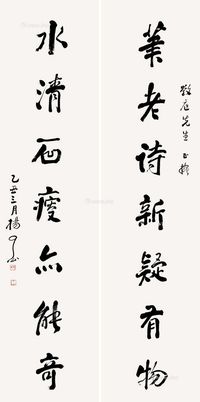 筆老诗新疑有物
先生
水清石瘦亦能奇
乙丑三月楊